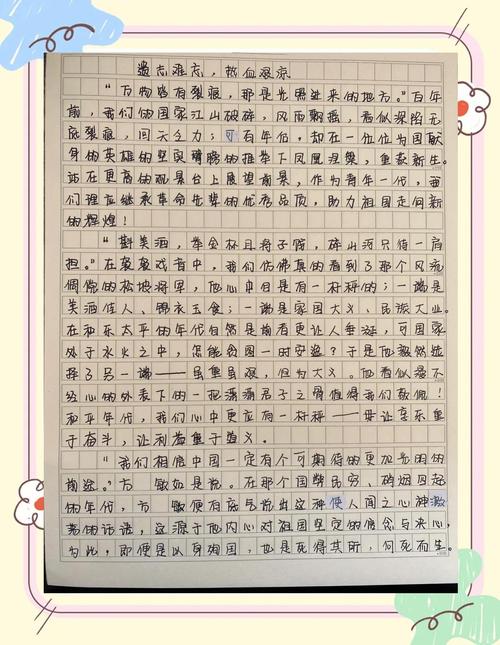 遗志难忘，热血难凉
“万物皆有裂痕，那是光照进来的地方。”百年
前，我们的国家江山破碎，风雨飘摇，看似深陷无
底裂痕，回天乏力；可百年后，却在一位位为国献
身的英雄的坚实臂膀的推举下凤凰涅槃，重获新生。
站在更高的观景台上展望前景，作为青年一代，我
们理应继承革命先辈的优秀品质，助力祖国走向新
的辉煌！
“斟美酒，举金杯且将子饯，碎山河只待一肩
担。”在袅袅戏音中，我们仿佛真的看到了那个风流
倜傥的松坡将军，他心中自是有一杆秤的；一端是
美酒佳人、锦衣玉食；一端是家国大义、民族大业。
在和乐太平的年代自然是前者更让人垂涎，可国家
处于水火之中，怎能贪图一时安逸？于是他毅然选
择了另一端——虽重虽艰，但为大义。他看似漫不
经心的外表下的一把荡荡君子之骨值得我们敬佩！
和平年代，我们心中更应有一杆秤——毋让享乐重
于奋斗，让利益重于道义。
“我们相信中国一定有个可期待的更加光明的
前途。”方 敏如是说。在那个国弊民穷、硝烟四起
的年代，方 敏便有底气说出这种使人闻之心神激
荡的话语，这源于他内心对祖国坚定的信念与决心，
为此，即便是以身殉国，也是死得其所，向死而生。